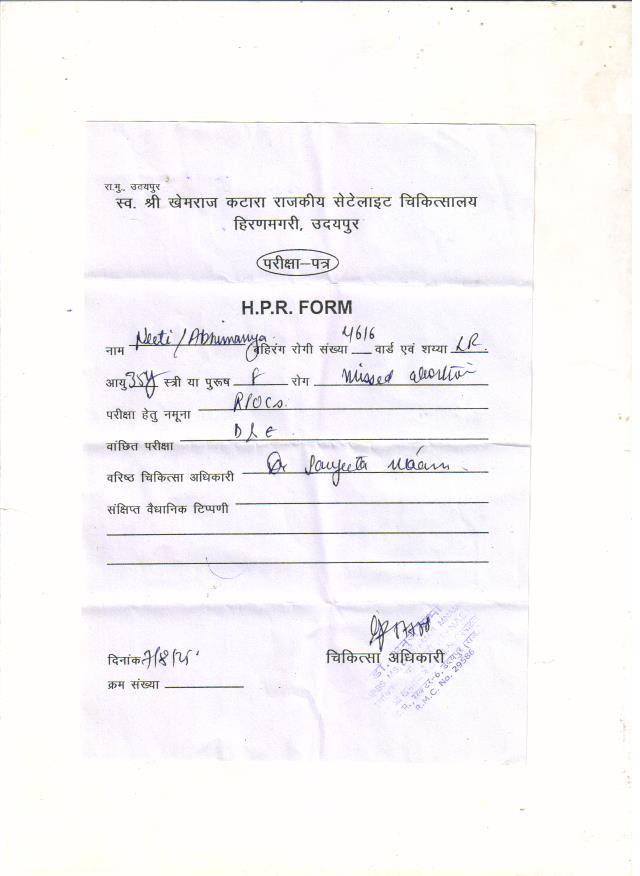 रा.मु., उदयपुर
स्व. श्री खेमराज कटारा राजकीय सेटेलाइट चिकित्सालय
हिरणमगरी, उदयपुर
परीक्षा–पत्र
H.P.R. FORM
नाम Neeti/Abhimanyu बहिरंग रोगी संख्या 4616 वार्ड एवं शय्या LR.
आयु 35y स्त्री या पुरूष F रोग Missed abortion
परीक्षा हेतु नमूना RPOCs.
वांछित परीक्षा
वरिष्ठ चिकित्सा अधिकारी Dr Sangeeta Ma'am
संक्षिप्त वैधानिक टिप्पणी
चिकित्सा अधिकारी
दिनांक 7/8/25
क्रम संख्या
R.M.C. No. 29586